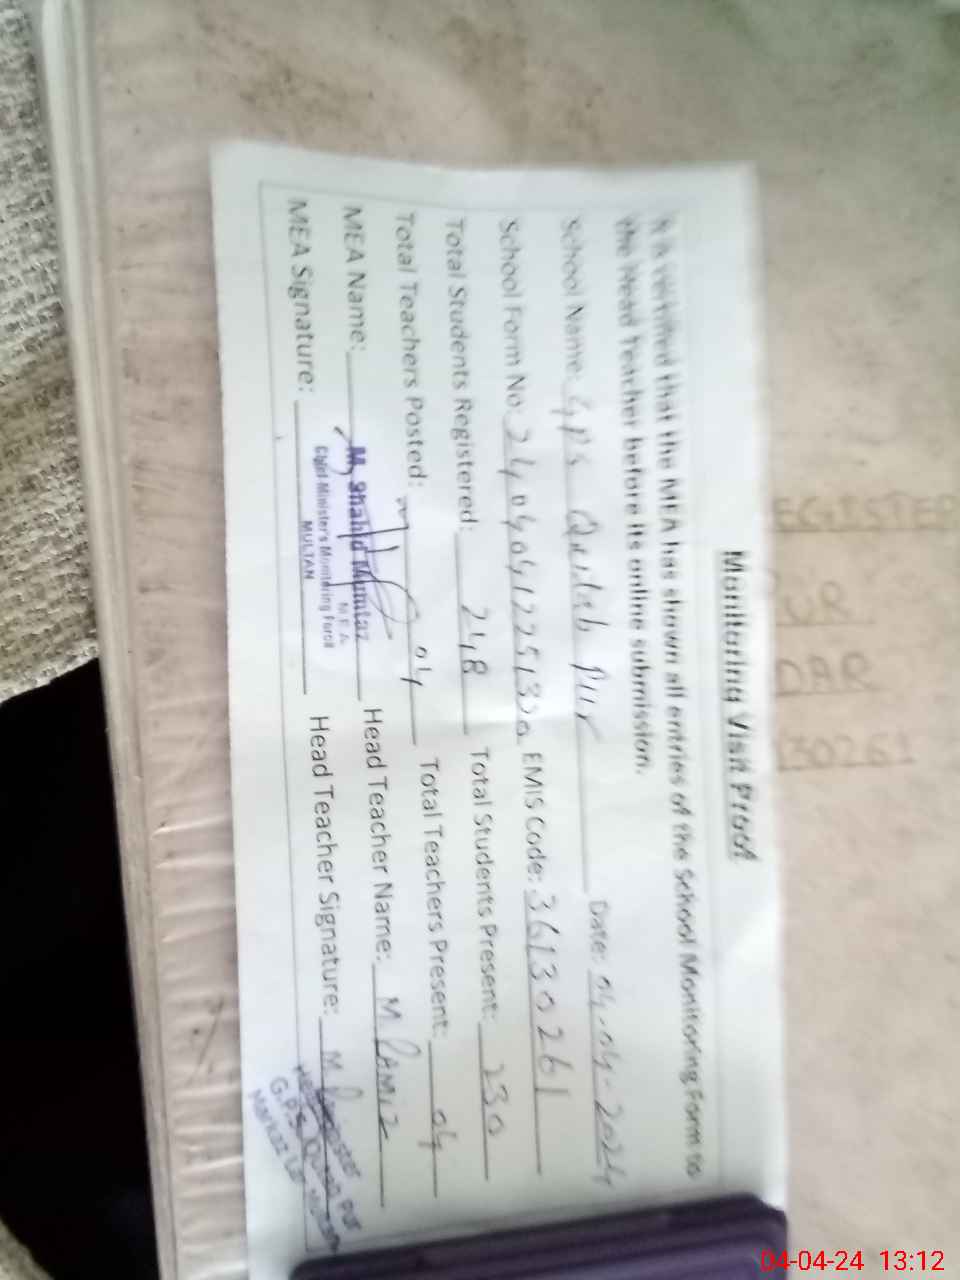 EGISTER
UR
DAR
30261
Monitoring Visit Proof
It is verified that the MEA has shown all entries of the School Monitoring Form to
the Head Teacher before its online submission.
School Name: GPS Qutab Pur Date: 04-04-2024
School Form No: EMIS Code: 36130261
Total Students Registered: 248 Total Students Present: 230
Total Teachers Posted: 04 Total Teachers Present: 04
MEA Name: M. Shahid Mumtaz Head Teacher Name: M. RAMIZ
M.E.A
Chief Minister's Monitoring Force
MULTAN
MEA Signature: Head Teacher Signature: M.
G.P.S. Pur
Markaz
04-04-24 13:12